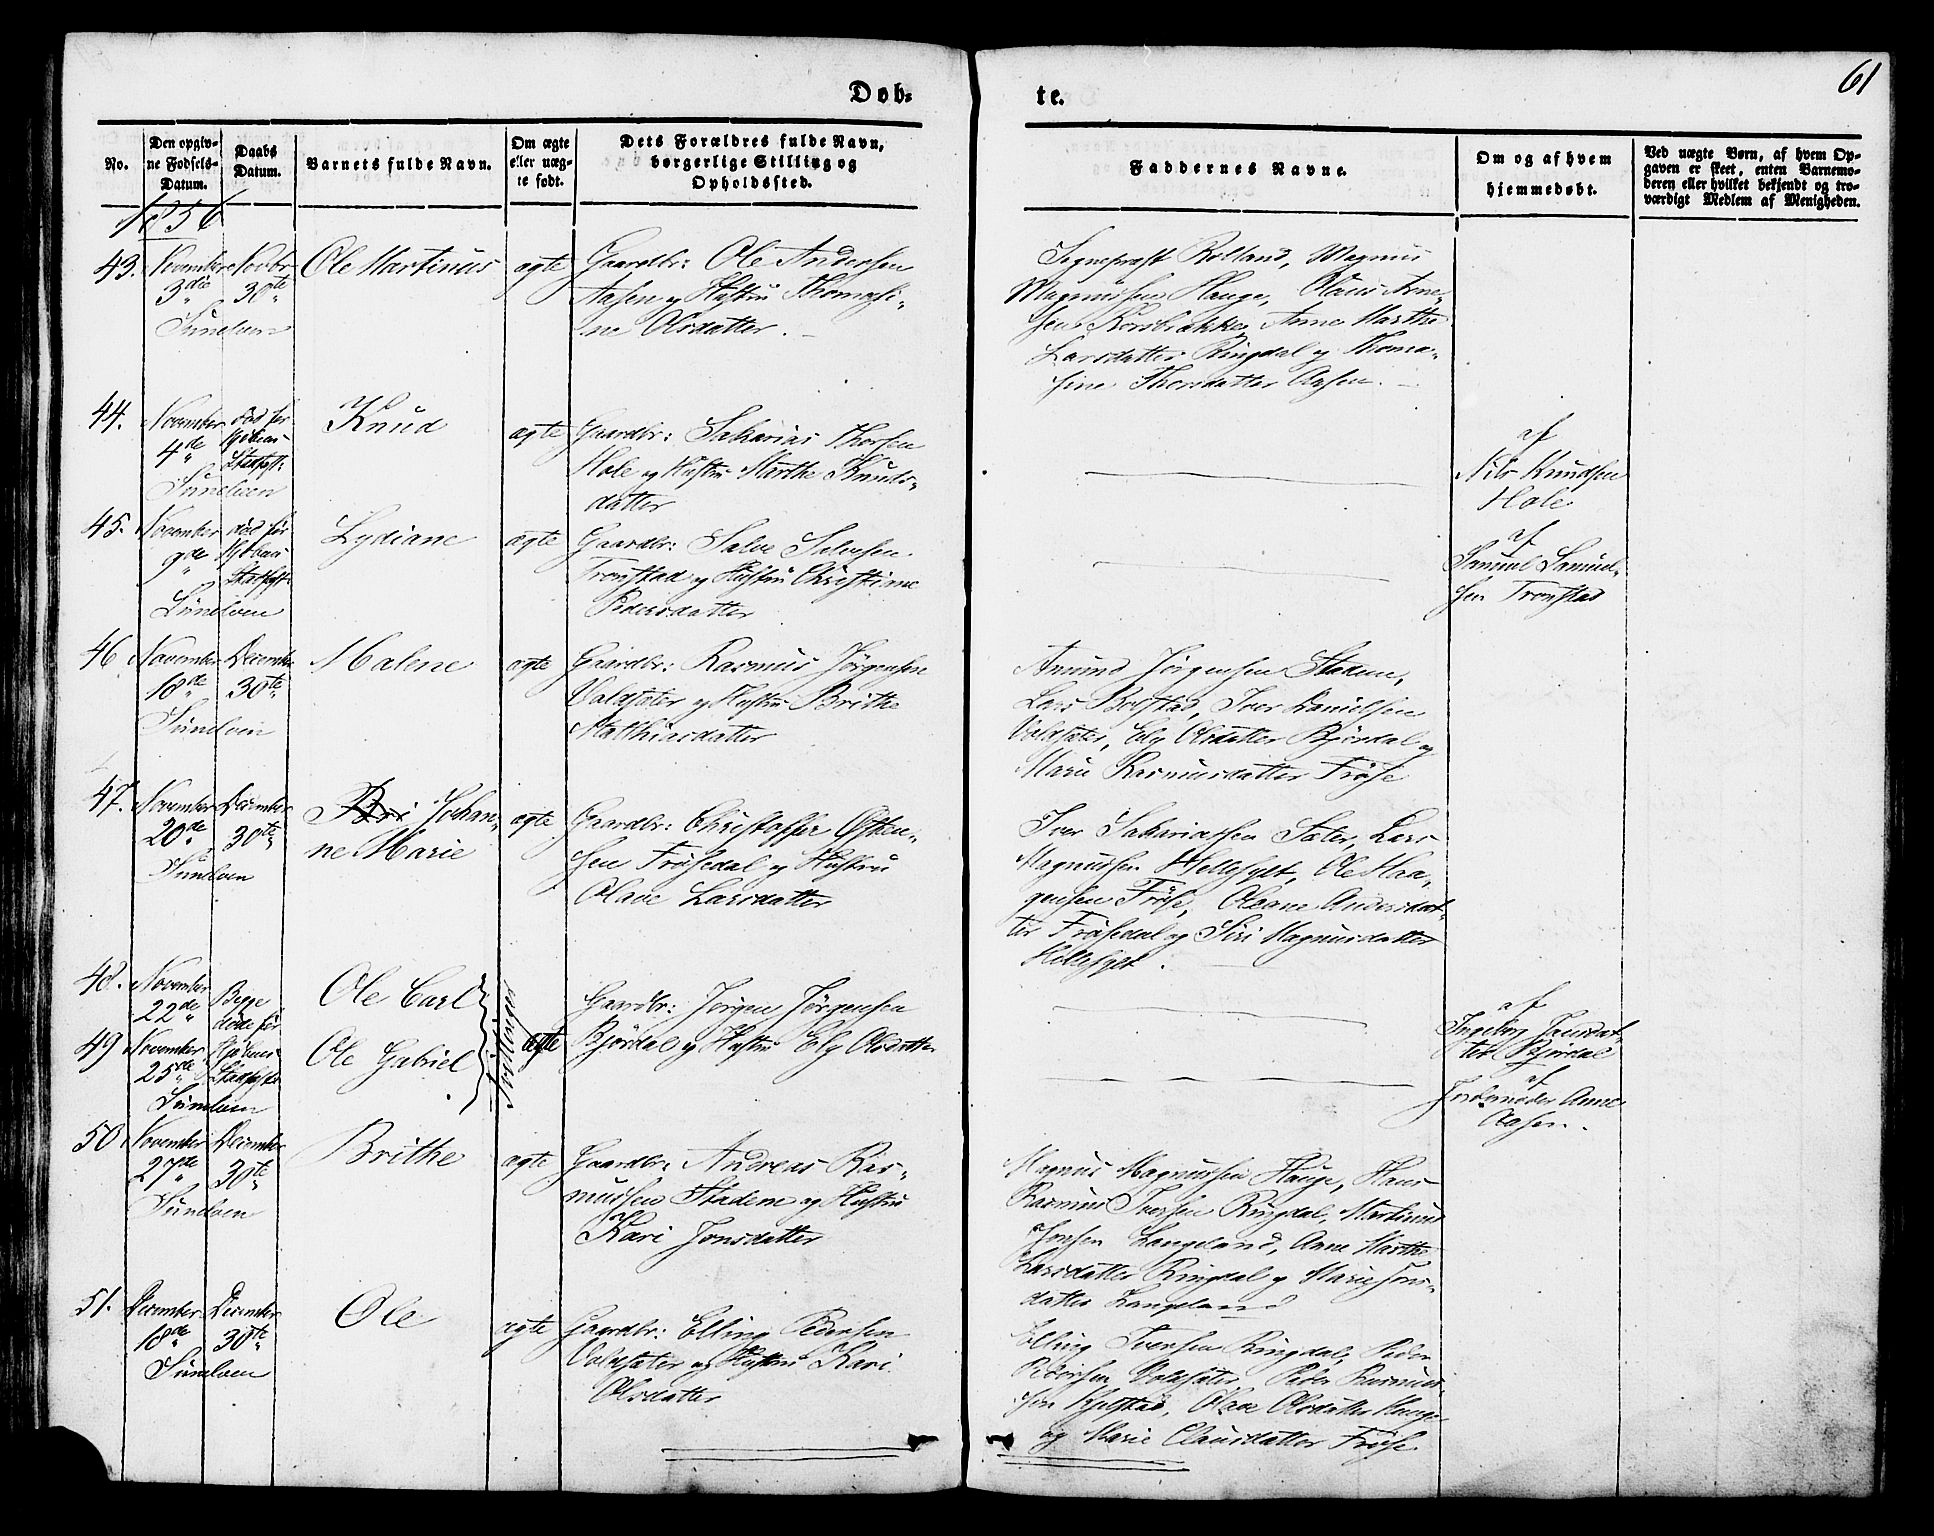 61
Døb-
te.
No.
Den opgiv-
ne Fødsels-
Datum.
Daabs
Datum.
Barnets fulde Navn.
Om ægte
eller uæg-
te født.
Dets Forældres fulde Navn,
borgerlige Stilling og
Opholdssted.
Faddernes Navne.
Om og af hvem
hjemmedøbt.
Ved uægte Børn, af hvem Op-
gaven er skeet, enten Barnemo-
deren eller hvilket bekjendt og tro-
værdigt Medlem af Menigheden.
1856
43.
November
3die
Sunelven
Novbr
30te
Ole Martinus
ægte
Gaardbr: Ole Andersen
Aasen og Hustru Thomasi-
ne Olsdatter.
Sognepræst Rolland, Magnus
Magnussen Hauge, Olaus Arne-
sen Korsbrække, Anne Marthe
Larsdatter Ringdal og Thoma-
sine Thorsdatter Aasen.
44.
November
4de
Sunelven
død før
Kirken
Stadfyst:
Knud
ægte
Gaardbr: Sakarias Thorsen
Hole og Hustru Marthe Knuds-
datter
af
Nils Knudsen
Hole
45.
November
9de
Sunelven
død før
Stadfyst:
Lydiane
ægte
Gaardbr: Salve Salvesen
Tronstad og Hustru Christinne
Pedersdatter
af
Samuel Samuel-
sen Tronstad
46
November
18de
Sunelven
December
30te
Malene
ægte
Gaardbr: Rasmus Jørgensen
Voldsæter og Hustru Brithe
Matthiasdatter
Amund Jørgensen Stadene,
Lars Bolstad, Iver Danielsen
Voldsæter, Ely Olsdatter Bjørdal og
Marie Rasmusdatter Frøse
47.
November
20de
Sunelven
December
30te
Bri Johan-
ne Marie
ægte
Gaardbr: Christoffer Østen-
sen Frøsedal og Hustru
Olave Larsdatter
Iver Sakariassen Sæter, Lars
Magnussen Hellesylt, Ole Haa-
gensen Frøse, Oleane Andersdat-
ter Frøsedal og Siri Magnusdatter
Hellesylt.
48.
November
22de
Begge
døde før
Ole Carl
Tvillinger
49
November
25de
Sunelven
Stadfyst:
Ole Gabriel
ægte
Gaardbr: Jørgen Jørgensen
Bjørdal og Hustru Ely Olsdatter
af
Ingeborg
ter Bjørdal
af
Jordemoder Anne
Aasen.
50.
November
27de
Sunelven
December
30te
Brithe
ægte
Gaardbr: Andreas Ras-
mussen Stadene og Hustru
Kari Jonsdatter
Magnus Magnussen Hauge, Hans
Rasmus Iversen Ringdal, Martinus
Jonsen Langeland, Anne Marthe
Larsdatter Ringdal og Marie Jons-
datter Langeland
51.
December
18de
Sunelven
December
30te
Ole
ægte
Gaardbr: Elling Pedersen
Voldsæter og Hustru Kari
Olsdatter
Elling Iversen Ringdal, Peder
Pedersen Voldsæter, Peder Rasmus-
sen Kjelstad, Olave Olsdatter Hauge
og Marie Clausdatter Frøse